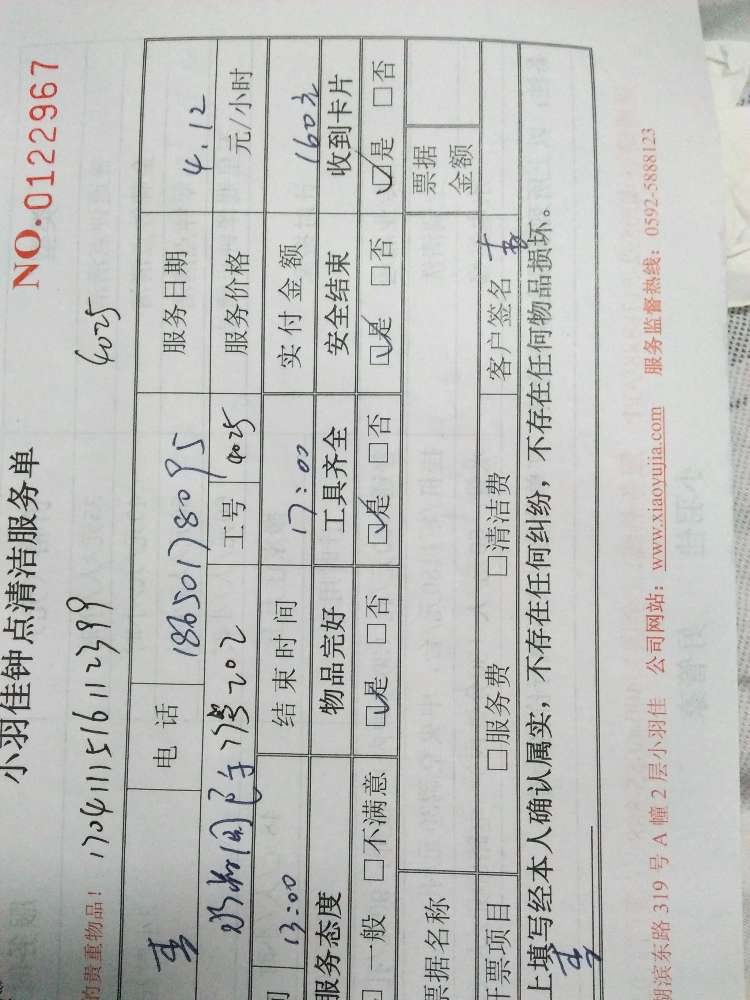 小羽佳钟点清洁服务单
NO.0122967
的贵重物品! 1704111516112399 4025
电话 18650178095 服务日期 4.12
202 工号 4025 服务价格 元/小时
13:00 结束时间 17:00 实付金额 160元
服务态度 物品完好 工具齐全 安全结束 收到卡片
□一般 □不满意 ☑是 □否 ☑是 □否 ☑是 □否 ☑是 □否
票据名称 票据金额
开票项目 □服务费 □清洁费 客户签名
上填写经本人确认属实，不存在任何纠纷，不存在任何物品损坏。
湖滨东路 319 号 A 幢 2 层小羽佳 公司网站：www.xiaoyujia.com 服务监督热线：0592-5888123